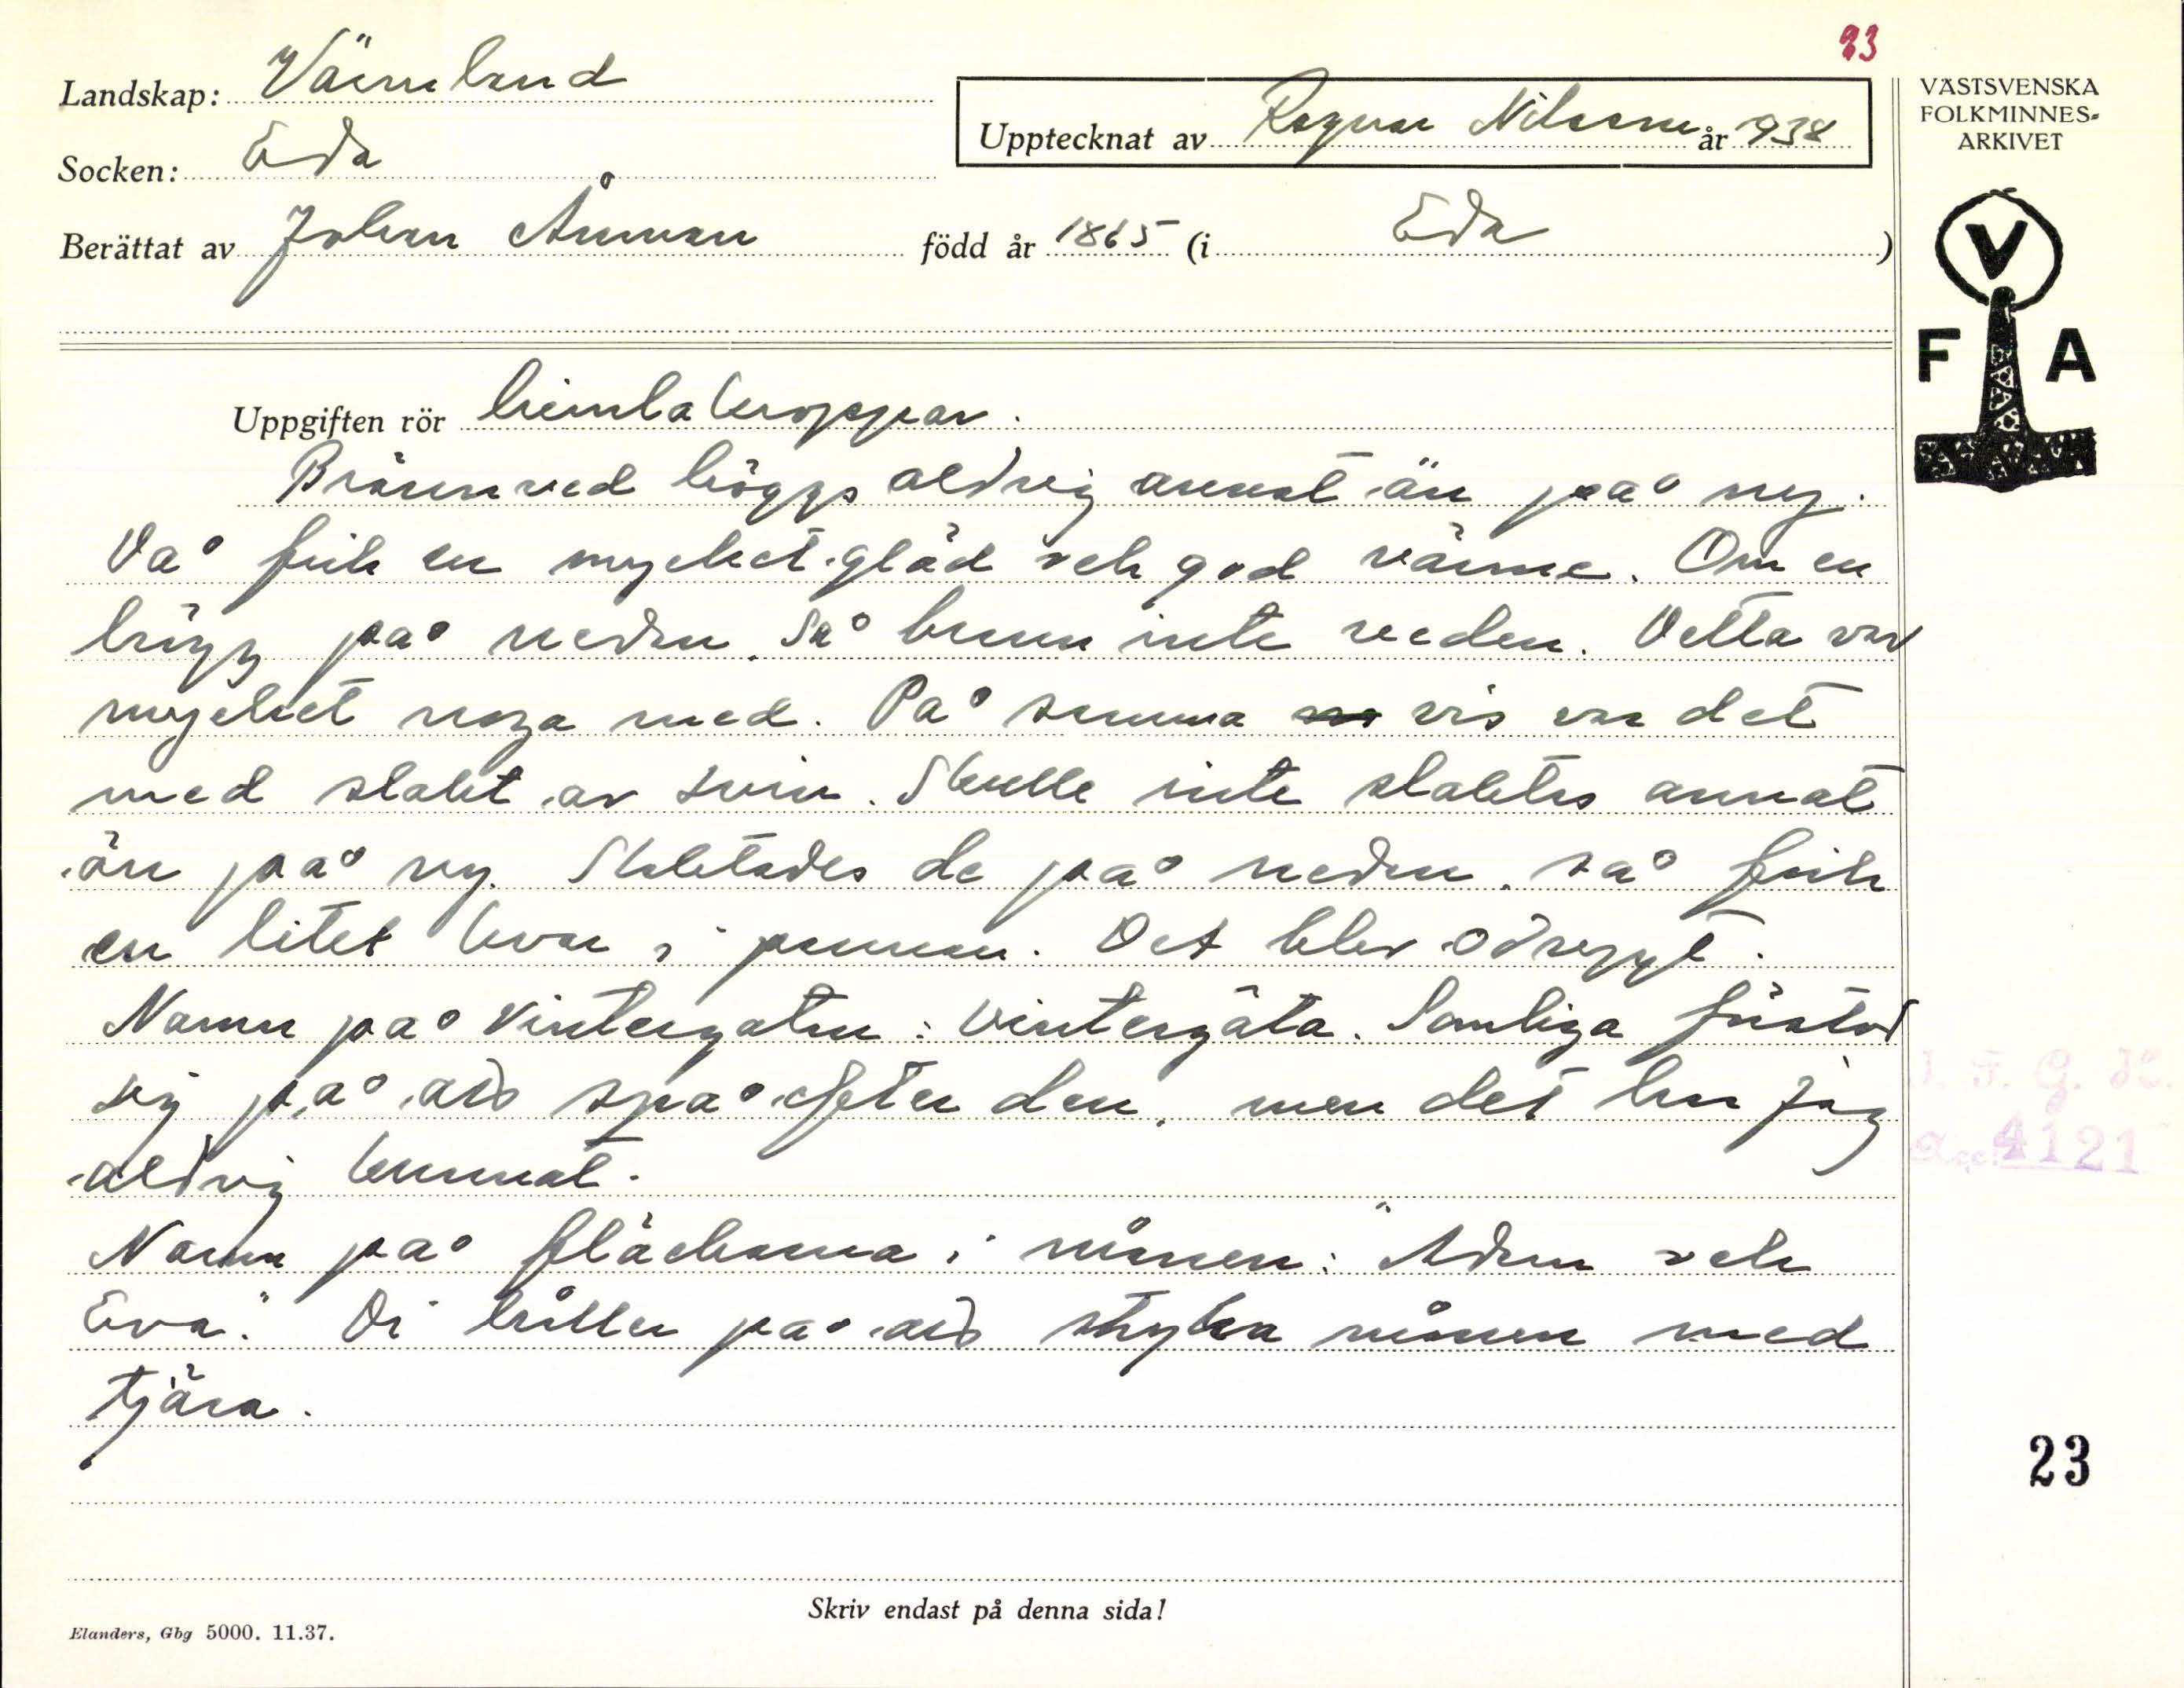 23
Landskap: Värmland
Upptecknat av Ragnar Nilsson år 1938
Socken: Eda
Berättat av Johan Åmman född år 1865 (i Eda)
VÄSTSVENSKA
FOLKMINNES-
ARKIVET
V
F A
Uppgiften rör himlakroppar.
Brännved höggs aldrig annat än på ny.
Då fick en mycket glöd och god värme. Om en
högg på nedan, så brann inte veden. Detta var
mycket noga med. På samma vis var det
med slakt av svin. Skulle inte slaktas annat
än på ny. Slaktades de på nedan, så fick
en litet kvar i pannan. Det blev odrygt.
Namn på vintergatan: vintergåta. Somliga förstod
sig på att spå efter den, men det har jag
aldrig kunnat.
Namn på fläckarna i månen: "Adam och
Eva." Di håller på att stryka månen med
tjära.
J. F. G. H.
Acc. 4121
23
Skriv endast på denna sida!
Elanders, Gbg 5000. 11.37.